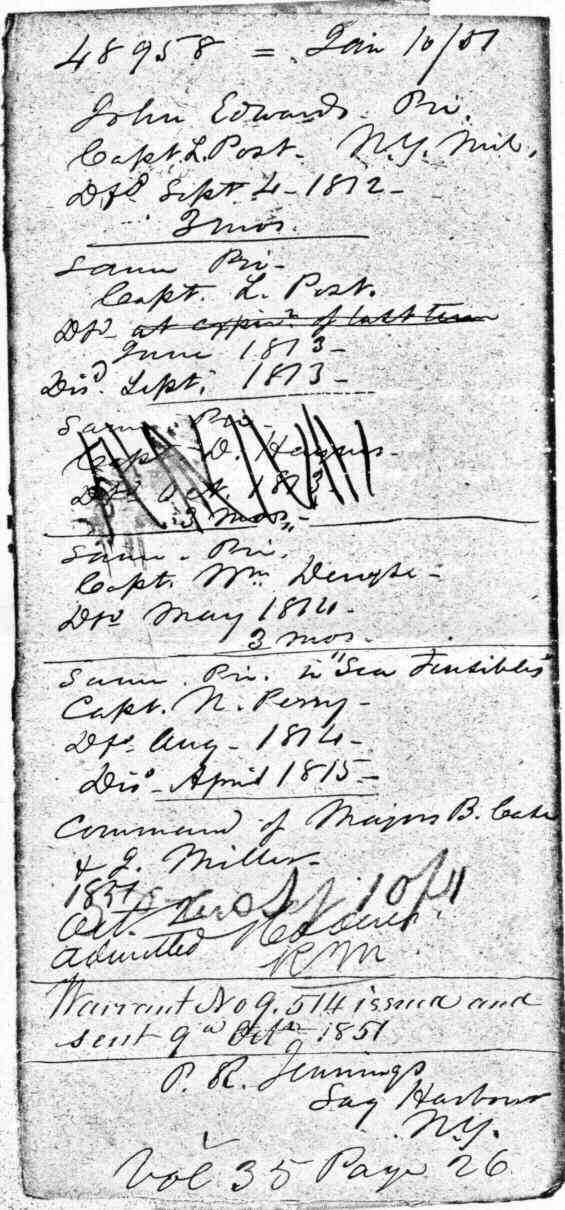 48958 = Jan 10/51
John Edwards. Pri.
Capt L. Post. N.Y. Mil.
Dfd Sept. 4 - 1812 -
3 mos.
Same Pri -
Capt. L. Post.
Dfd at expirn. of last term
June 1813 -
Disd. Sept. 1813 -
Same. Pri -
Capt. D. Haynes -
Dfd Oct. 1813.
3 mos. -
Same. Pri.
Capt. Wm
Dfd May 1814.
3 mos.
Same. Pri. in "Sea Fensibles"
Capt. N. Perry -
Dfd. Aug - 1814 -
Disd - April 1815 -
Command of Majors B. Case
& J. Miller -
1851
Oct. 10/4
Admitted
RM
Warrant No 9.514 issued and
sent 9th Octr 1851
P. R. Jennings
Sag Harbour
N.Y.
Vol 35 Page 26